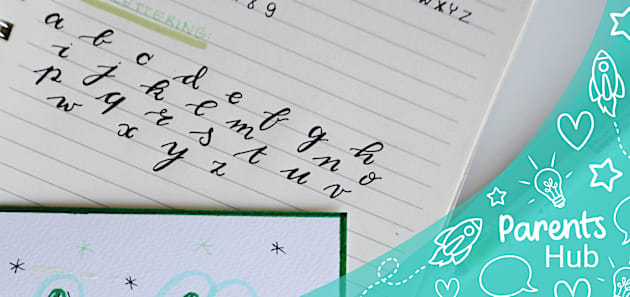 8 9
W X Y Z
LETTERING:
a b c d e f g h
i j k l m n o
p q r s t u v
w x y z
Parents
Hub